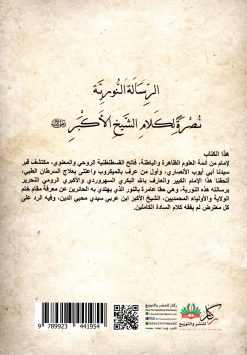 الرسالة النورية
نصرة لكلام الشيخ الأكبر
هذا الكتاب
لإمام من أئمة العلوم الظاهرة والباطنة، فاتح القسطنطنية الروحي والمعنوي، مكتشف قبر
سيدنا أبي أيوب الأنصاري، وأول من عرف بالميكروب واعتنى بعلاج السرطان الطبي،
أتحفنا هذا الإمام الكبير والعارف بالله البكري السهروردي والأكبري الرومي التحرير
برسالته هذه النورية، وهي حقا عامرة بالنور الذي يهتدي به الحائرين عن معرفة مقام ختم
الولاية والأولياء المحمديين، الشيخ الأكبر ابن عربي سيدي محيي الدين، وفيه الرد على
كل معترض لم يفقه كلام السادة الكاملين.
ركاز للنشر والتوزيع
9 789923 441954